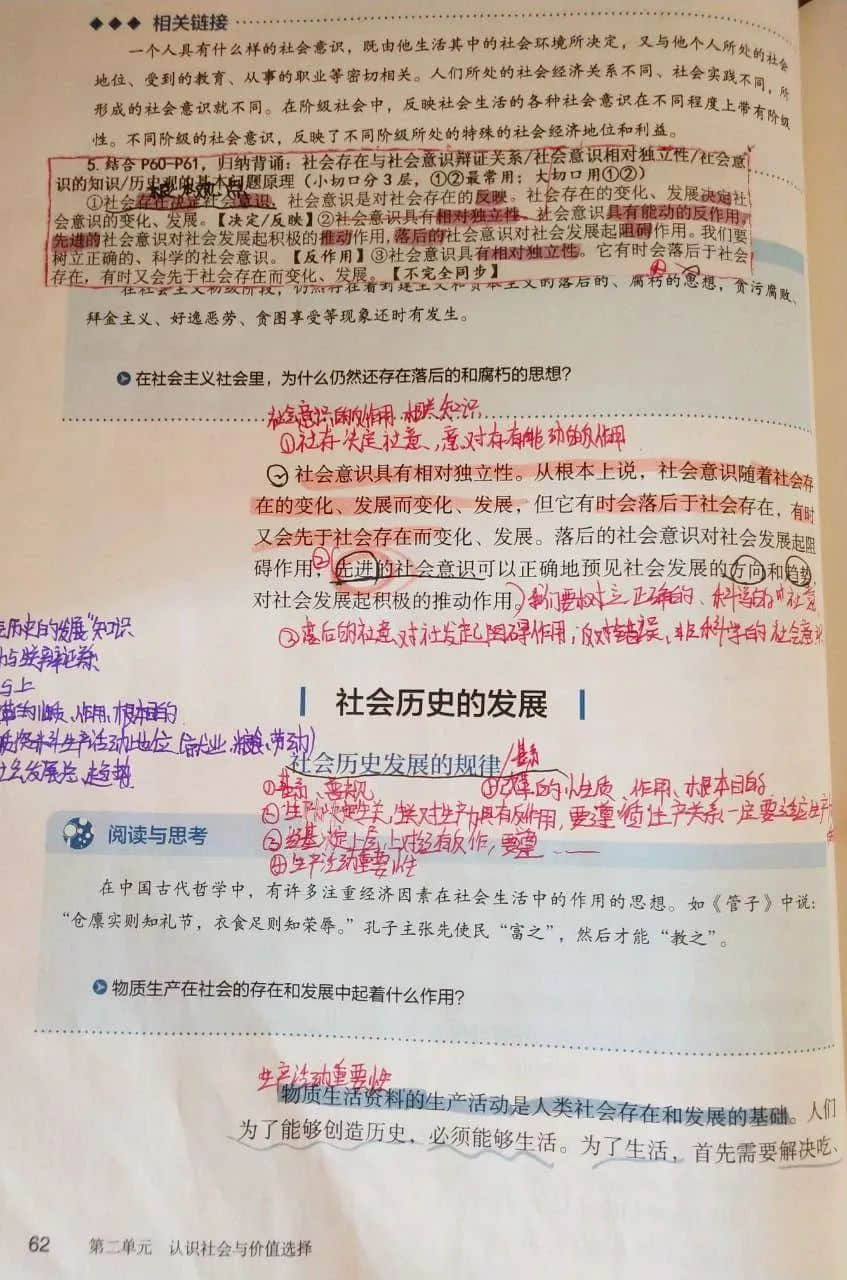 ◆◆◆ 相关链接
一个人具有什么样的社会意识，既由他生活其中的社会环境所决定，又与他个人所处的社会
地位、受到的教育、从事的职业等密切相关。人们所处的社会经济关系不同、社会实践不同，所
形成的社会意识就不同。在阶级社会中，反映社会生活的各种社会意识在不同程度上带有阶级
性。不同阶级的社会意识，反映了不同阶级所处的特殊的社会经济地位和利益。
5. 结合 P60-P61，归纳背诵：社会存在与社会意识辩证关系/社会意识相对独立性/社会意
识的知识/历史观的基本问题原理（小切口分 3 层，①②最常用；大切口用①②）
①社会存在决定社会意识。社会意识是对社会存在的反映。社会存在的变化、发展决定社
会意识的变化、发展。【决定/反映】②社会意识具有相对独立性。社会意识具有能动的反作用。
先进的社会意识对社会发展起积极的推动作用，落后的社会意识对社会发展起阻碍作用。我们要
树立正确的、科学的社会意识。【反作用】③社会意识具有相对独立性。它有时会落后于社会
存在，有时又会先于社会存在而变化、发展。【不完全同步】
在社会主义初级阶段，仍然存在着封建主义和资本主义的落后的、腐朽的思想，贪污腐败、
拜金主义、好逸恶劳、贪图享受等现象还时有发生。
在社会主义社会里，为什么仍然还存在落后的和腐朽的思想？
社会意识的反作用 相关知识
①社存决定社意、意对存有能动的反作用
社会意识具有相对独立性。从根本上说，社会意识随着社会存
在的变化、发展而变化、发展，但它有时会落后于社会存在，有时
又会先于社会存在而变化、发展。落后的社会意识对社会发展起阻
碍作用，②先进的社会意识可以正确地预见社会发展的方向和趋势，
对社会发展起积极的推动作用。我们要树立正确的、科学的社意
③落后的社意对社发起阻碍作用，反对错误、非科学的社会意识
历史的发展"知识
社会历史的发展
社会历史发展的规律/基矛
①基矛、要 ⑤改革的性质、作用、根本目的
②生产力决定生关，生关对生产力具有反作用，要遵循生产关系一定要适应生产力
③经基决定上层，上对经有反作，要遵
④生产活动重要性
阅读与思考
在中国古代哲学中，有许多注重经济因素在社会生活中的作用的思想。如《管子》中说：
“仓廪实则知礼节，衣食足则知荣辱。”孔子主张先使民“富之”，然后才能“教之”。
物质生产在社会的存在和发展中起着什么作用？
生产活动重要性
物质生活资料的生产活动是人类社会存在和发展的基础。人们
为了能够创造历史，必须能够生活。为了生活，首先需要解决吃、
62 第二单元 认识社会与价值选择